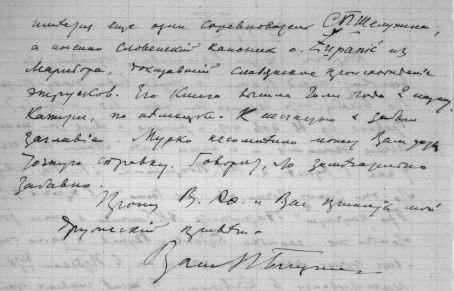 еще один соревнователь С.П. Шелухина,
а именно Словенский каноник о. Županić из
Марибора, доказавший славянское происхождение
этрусков. Его книга вышла года 2 назад.
Кажется, по немецки. К несчастью я забыл
заглавие. Мурко несомненно может Вам дать
точную справку. Говорят, что
забавно.
Прошу В. Ф. и Вас принять мой
дружеский привет.
Ваш